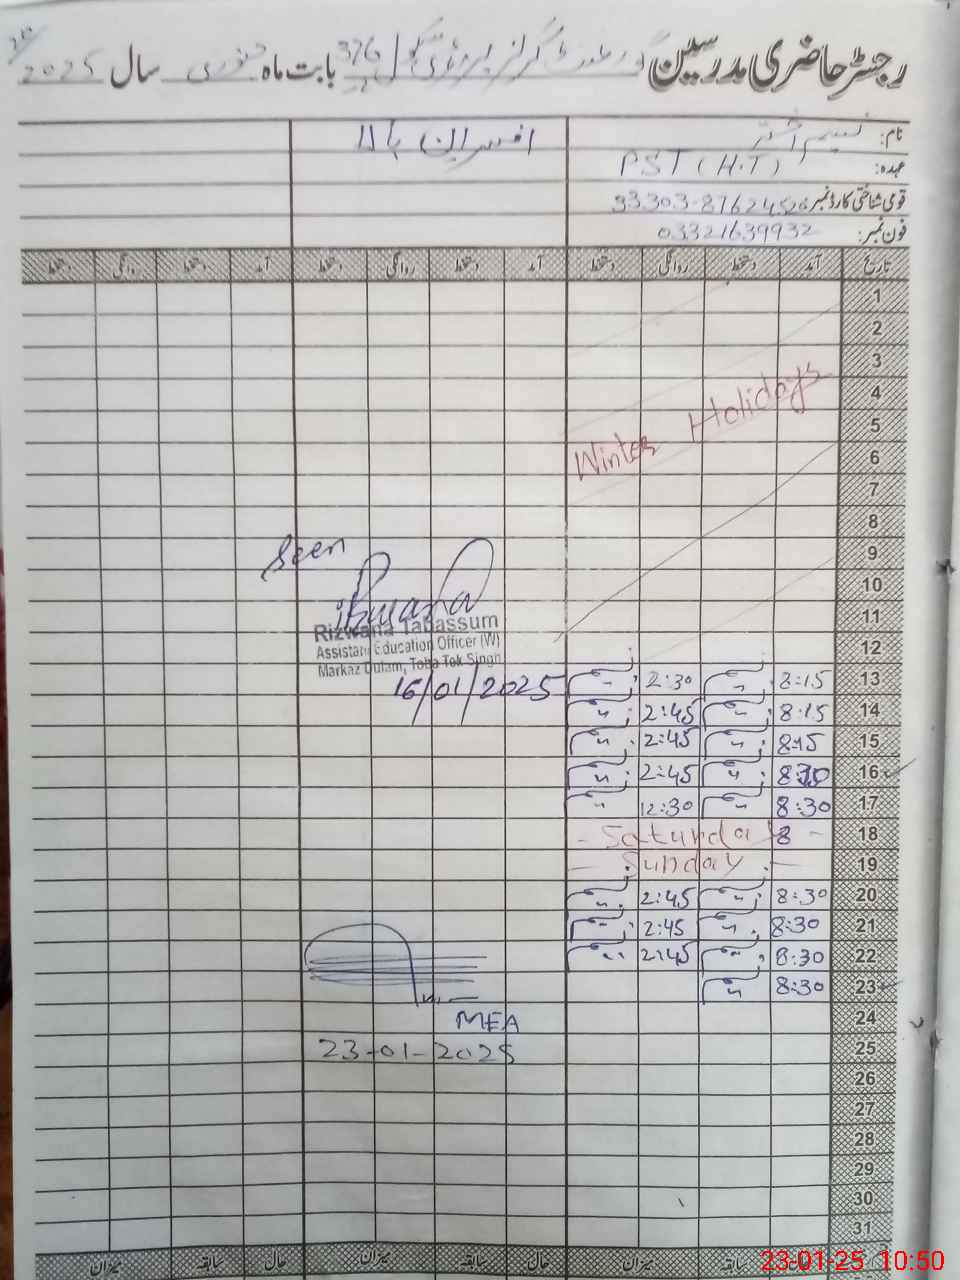 رجسٹر حاضری مدرسین گورنمنٹ گرلز پرائمری سکول 376 بابت ماہ جنوری سال 2025
نام: نسیم اختر افسران بالا
عہدہ: PST (H.T)
قومی شناختی کارڈ نمبر
فون نمبر: 03321639932
تاریخ آمد دستخط روانگی دستخط آمد دستخط روانگی دستخط آمد دستخط روانگی دستخط
1
2
3
4
5
6
7
Winter Holidays
8
9
Seen
10
11
Rizwana Tabassum
Assistant Education Officer (W)
12
Markaz Dulam, Toba Tek Singh
13 8:15 2:30
16/01/2025
14 8:15 2:45
15 8:15 2:45
16 8:30 2:45
17 8:30 12:30
18 Saturday
19 Sunday
20 8:30 2:45
21 8:30 2:45
22 8:30 2:45
23 8:30
24
MEA
25
23-01-2025
26
27
28
29
30
31
میزان سابقہ حال میزان سابقہ حال میزان سابقہ
23-01-25 10:50